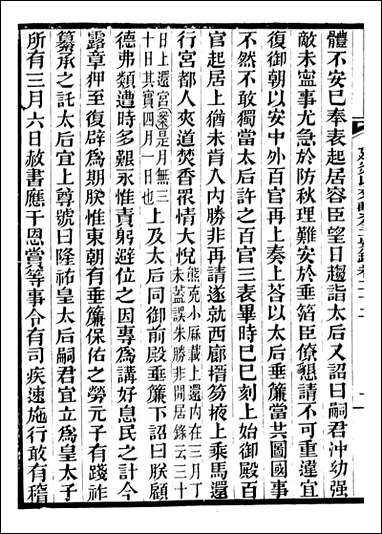 體不安已奉表起居容臣望日趨詣太后又詔曰嗣君沖幼强
敵未寍事尤急於防秋理難安於垂箔臣僚懇請不可重違宜
復御朝以安中外百官再上奏上荅以太后垂簾當共圖國事
不然不敢獨當太后許之百官三表畢時已巳刻上始御殿百
官起居上猶未肯入内勝非再請遂就西廊搢笏掖上乘馬還
行宮都人夾道焚香衆情大悅熊克小厤載上還内在三月丁
未葢誤朱勝非閒居錄云三十
日上還宮案是月無三
十日其實四月一日也上及太后同御前殿垂簾下詔曰朕顧
德弗類遭時多艱永惟責躬避位之因專爲講好息民之計今
露章狎至復辟爲期朕惟東朝有垂簾保佑之勞元子有踐祚
纂承之託太后宜上尊號曰隆祐皇太后嗣君宜立爲皇太子
所有三月六日赦書應干恩賞等事令有司疾速施行敢有稽